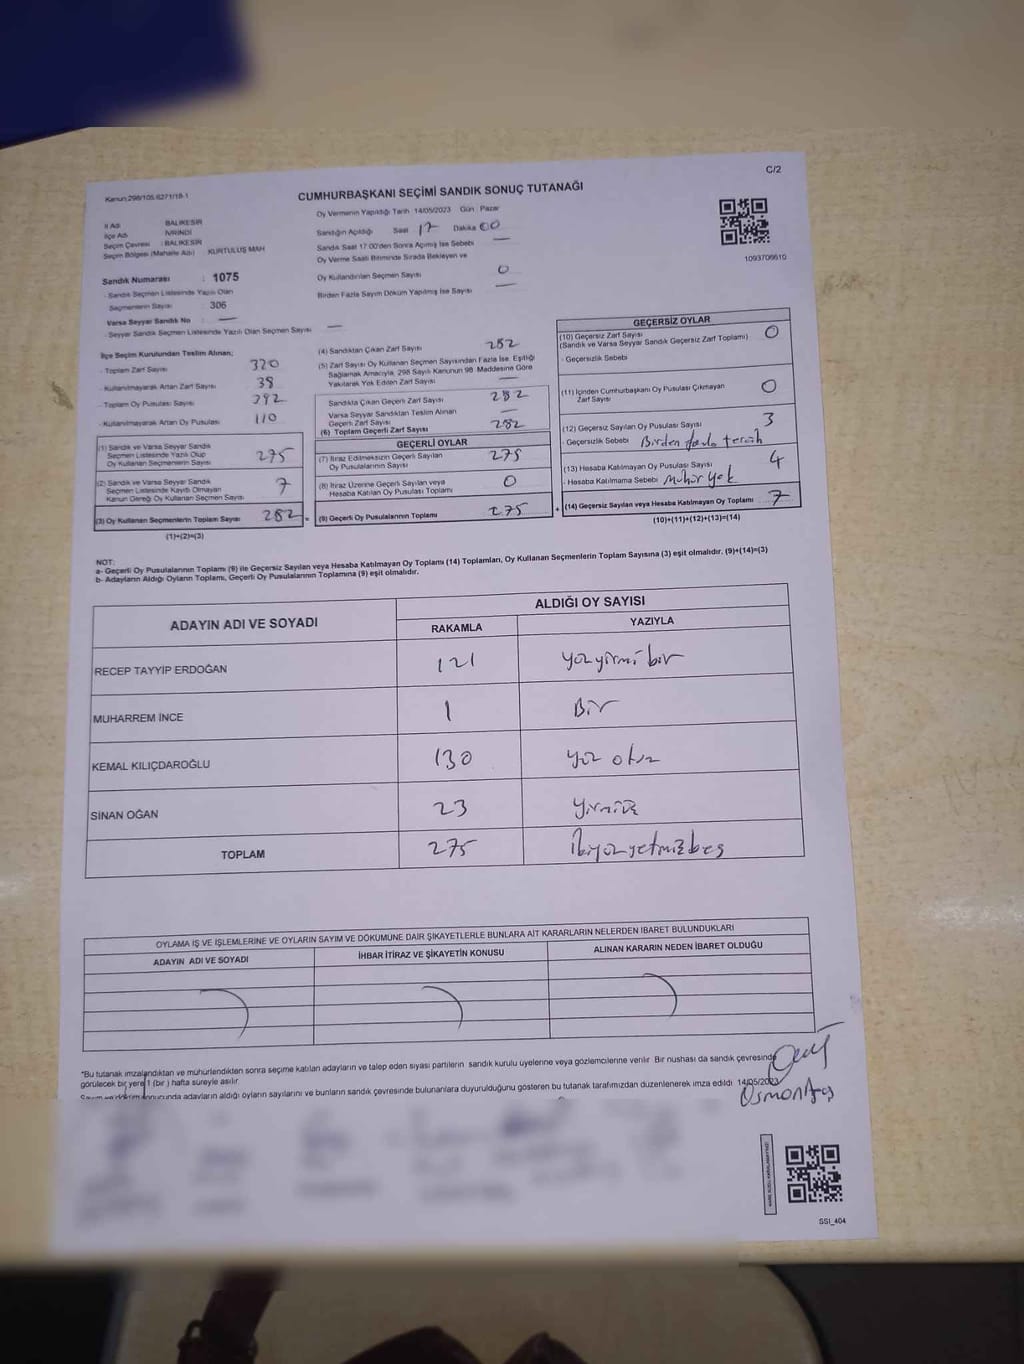 C/2
Kanun:298/105.6271/18-1
CUMHURBAŞKANI SEÇİMİ SANDIK SONUÇ TUTANAĞI
İl Adı : BALIKESİR
İlçe Adı : İVRİNDİ
Seçim Çevresi : BALIKESİR
Seçim Bölgesi (Mahalle Adı) : KURTULUŞ MAH
Sandık Numarası : 1075
- Sandık Seçmen Listesinde Yazılı Olan
Seçmenlerin Sayısı : 306
Varsa Seyyar Sandık No : —
- Seyyar Sandık Seçmen Listesinde Yazılı Olan Seçmen Sayısı —
Oy Vermenin Yapıldığı Tarih 14/05/2023 Gün : Pazar
Sandığın Açıldığı Saat 17 Dakika 00
Sandık Saat 17:00'den Sonra Açılmış İse Sebebi —
Oy Verme Saati Bitiminde Sırada Bekleyen ve
Oy Kullandırılan Seçmen Sayısı 0
Birden Fazla Sayım Döküm Yapılmış İse Sayısı —
1093706610
İlçe Seçim Kurulundan Teslim Alınan;
- Toplam Zarf Sayısı 320
- Kullanılmayarak Artan Zarf Sayısı 38
- Toplam Oy Pusulası Sayısı 392
- Kullanılmayarak Artan Oy Pusulası 110
(1) Sandık ve Varsa Seyyar Sandık
Seçmen Listesinde Yazılı Olup
Oy Kullanan Seçmenlerin Sayısı 275
(2) Sandık ve Varsa Seyyar Sandık
Seçmen Listesinde Kayıtlı Olmayan
Kanun Gereği Oy Kullanan Seçmen Sayısı 7
(3) Oy Kullanan Seçmenlerin Toplam Sayısı 282 =
(1)+(2)=(3)
(4) Sandıktan Çıkan Zarf Sayısı 282
(5) Zarf Sayısı Oy Kullanan Seçmen Sayısından Fazla İse, Eşitliği
Sağlamak Amacıyla, 298 Sayılı Kanunun 98. Maddesine Göre
Yakılarak Yok Edilen Zarf Sayısı —
Sandıkta Çıkan Geçerli Zarf Sayısı 282
Varsa Seyyar Sandıktan Teslim Alınan
Geçerli Zarf Sayısı —
(6) Toplam Geçerli Zarf Sayısı 282
GEÇERLİ OYLAR
(7) İtiraz Edilmeksizin Geçerli Sayılan
Oy Pusulalarının Sayısı 275
(8) İtiraz Üzerine Geçerli Sayılan veya
Hesaba Katılan Oy Pusulası Toplamı 0
(9) Geçerli Oy Pusulalarının Toplamı 275 +
GEÇERSİZ OYLAR
(10) Geçersiz Zarf Sayısı
(Sandık ve Varsa Seyyar Sandık Geçersiz Zarf Toplamı) 0
- Geçersizlik Sebebi
(11) İçinden Cumhurbaşkanı Oy Pusulası Çıkmayan
Zarf Sayısı 0
(12) Geçersiz Sayılan Oy Pusulası Sayısı 3
- Geçersizlik Sebebi Birden fazla tercih
(13) Hesaba Katılmayan Oy Pusulası Sayısı 4
- Hesaba Katılmama Sebebi Mühür yok
(14) Geçersiz Sayılan veya Hesaba Katılmayan Oy Toplamı 7
(10)+(11)+(12)+(13)=(14)
NOT:
a- Geçerli Oy Pusulalarının Toplamı (9) ile Geçersiz Sayılan veya Hesaba Katılmayan Oy Toplamı (14) Toplamları, Oy Kullanan Seçmenlerin Toplam Sayısına (3) eşit olmalıdır. (9)+(14)=(3)
b- Adayların Aldığı Oyların Toplamı, Geçerli Oy Pusulalarının Toplamına (9) eşit olmalıdır.
ADAYIN ADI VE SOYADI
ALDIĞI OY SAYISI
RAKAMLA YAZIYLA
RECEP TAYYİP ERDOĞAN 121 yüzyirmi bir
MUHARREM İNCE 1 Bir
KEMAL KILIÇDAROĞLU 130 yüz otuz
SİNAN OĞAN 23 Yirmiüç
TOPLAM 275 İkiyüzyetmişbeş
OYLAMA İŞ VE İŞLEMLERİNE VE OYLARIN SAYIM VE DÖKÜMÜNE DAİR ŞİKAYETLERLE BUNLARA AİT KARARLARIN NELERDEN İBARET BULUNDUKLARI
ADAYIN ADI VE SOYADI İHBAR İTİRAZ VE ŞİKAYETİN KONUSU ALINAN KARARIN NEDEN İBARET OLDUĞU
*Bu tutanak imzalandıktan ve mühürlendikten sonra seçime katılan adayların ve talep eden siyasi partilerin sandık kurulu üyelerine veya gözlemcilerine verilir. Bir nüshası da sandık çevresinde
görülecek bir yere 1 (bir) hafta süreyle asılır.
Sayım ve döküm sonucunda adayların aldığı oyların sayılarını ve bunların sandık çevresinde bulunanlara duyurulduğunu gösteren bu tutanak tarafımızdan düzenlenerek imza edildi. 14/05/2023
SSI_404